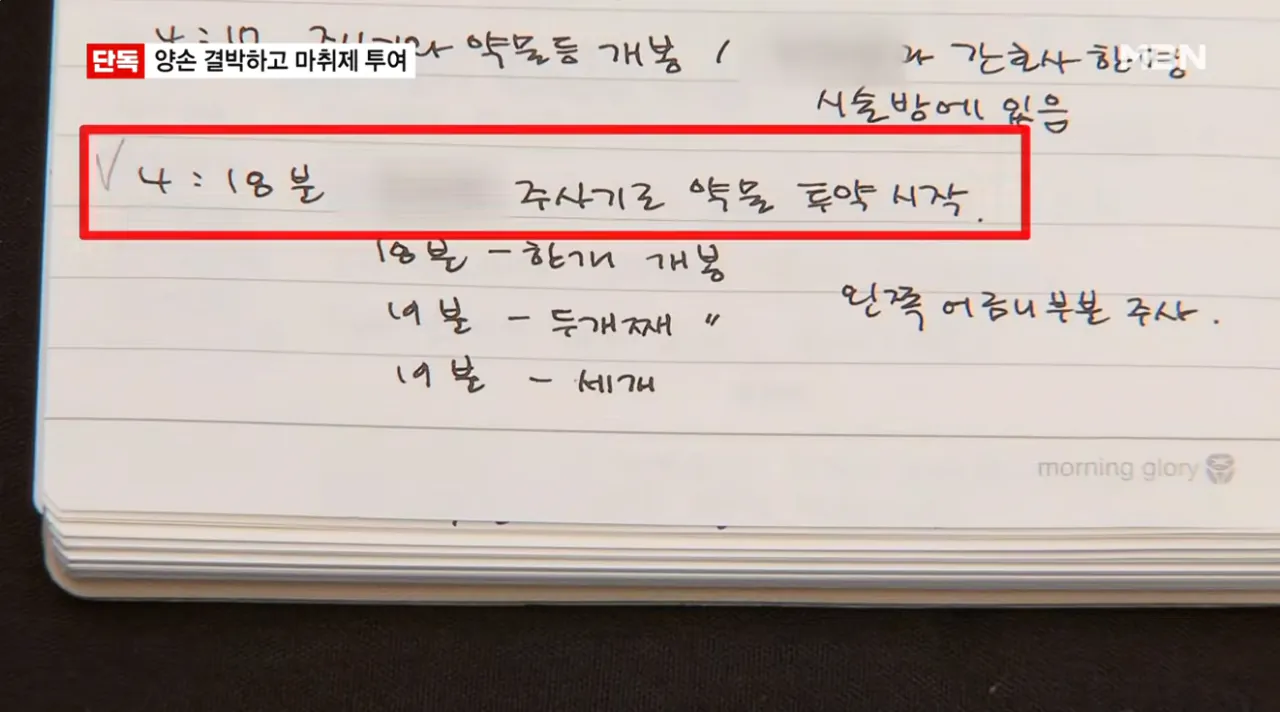 단독 양손 결박하고 마취제 투여
MBN
약물등 개봉 / 과 간호사 한명
시술방에 있음
√ 4:18분 주사기로 약물 투약 시작.
18분 - 한개 개봉
19분 - 두개째 〃
왼쪽 어금니부분 주사.
19분 - 세개
morning glory